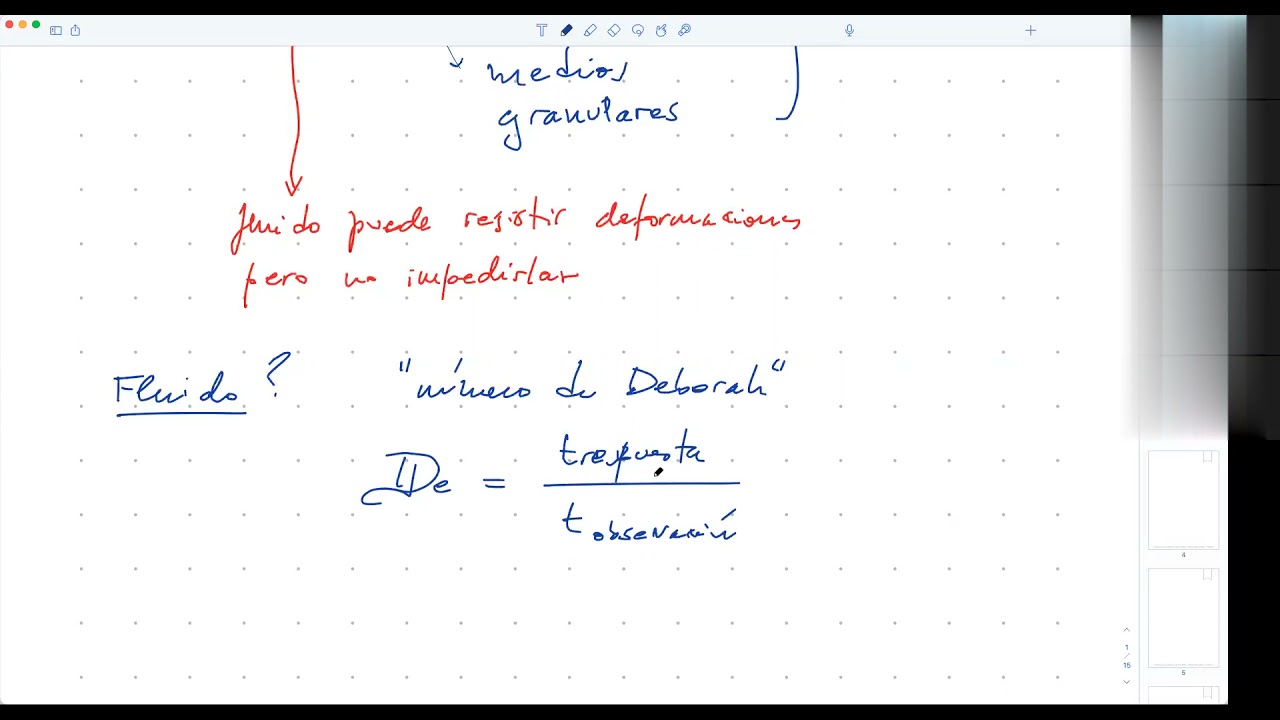 medios
granulares
fluido puede resistir deformaciones
pero no impedirlas
Fluido ? "número de Deborah"
De = t respuesta
t observación
4
1
/
15
5